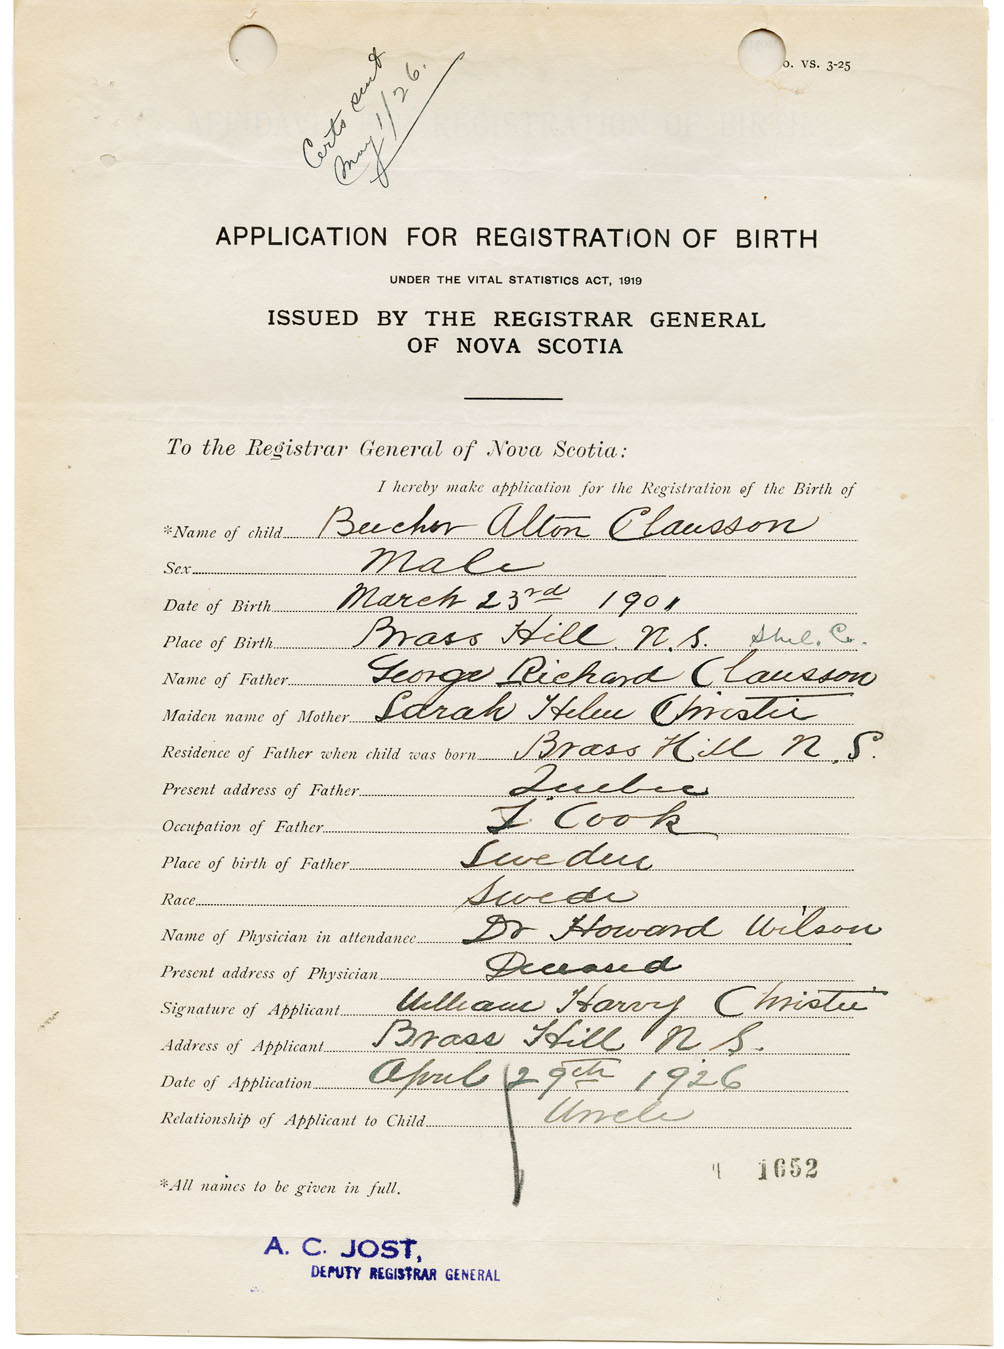 o. vs. 3-25
Certs sent
May 1/26.
APPLICATION FOR REGISTRATION OF BIRTH
UNDER THE VITAL STATISTICS ACT, 1919
ISSUED BY THE REGISTRAR GENERAL
OF NOVA SCOTIA
To the Registrar General of Nova Scotia:
I hereby make application for the Registration of the Birth of
*Name of child Beecher Alton Clausson
Sex Male
Date of Birth March 23rd 1901
Place of Birth Brass Hill. N. S. Shel. Co.
Name of Father George Richard Clausson
Maiden name of Mother Sarah Helen Christie
Residence of Father when child was born Brass Hill N. S.
Present address of Father Quebec
Occupation of Father Cook
Place of birth of Father Sweden
Race Swede
Name of Physician in attendance Dr Howard Wilson
Present address of Physician Deceased
Signature of Applicant William Harvy Christie
Address of Applicant Brass Hill N. S.
Date of Application April 29th 1926
Relationship of Applicant to Child Uncle
1652
*All names to be given in full.
A. C. JOST,
DEPUTY REGISTRAR GENERAL